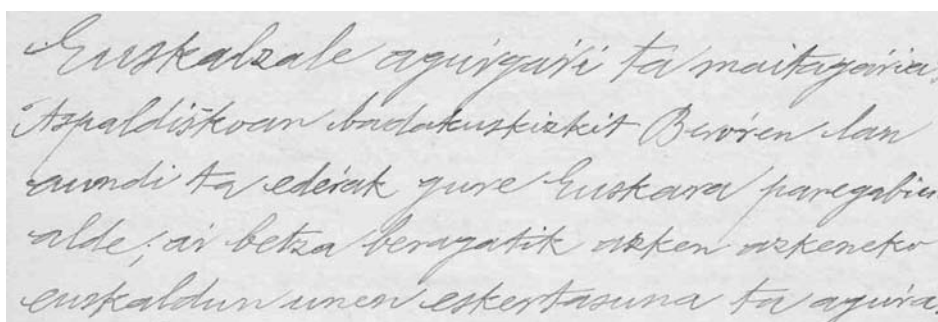 Euskalzale agúrgáŕi ta maitagáŕia.
Aspaldiškoan badakuskizkit Beróŕen lan
aundi ta edéŕak gure Euskara paregabien
alde; ai betza beragatik azken azkeneko
euskaldun unen eskertasuna ta agúŕa.